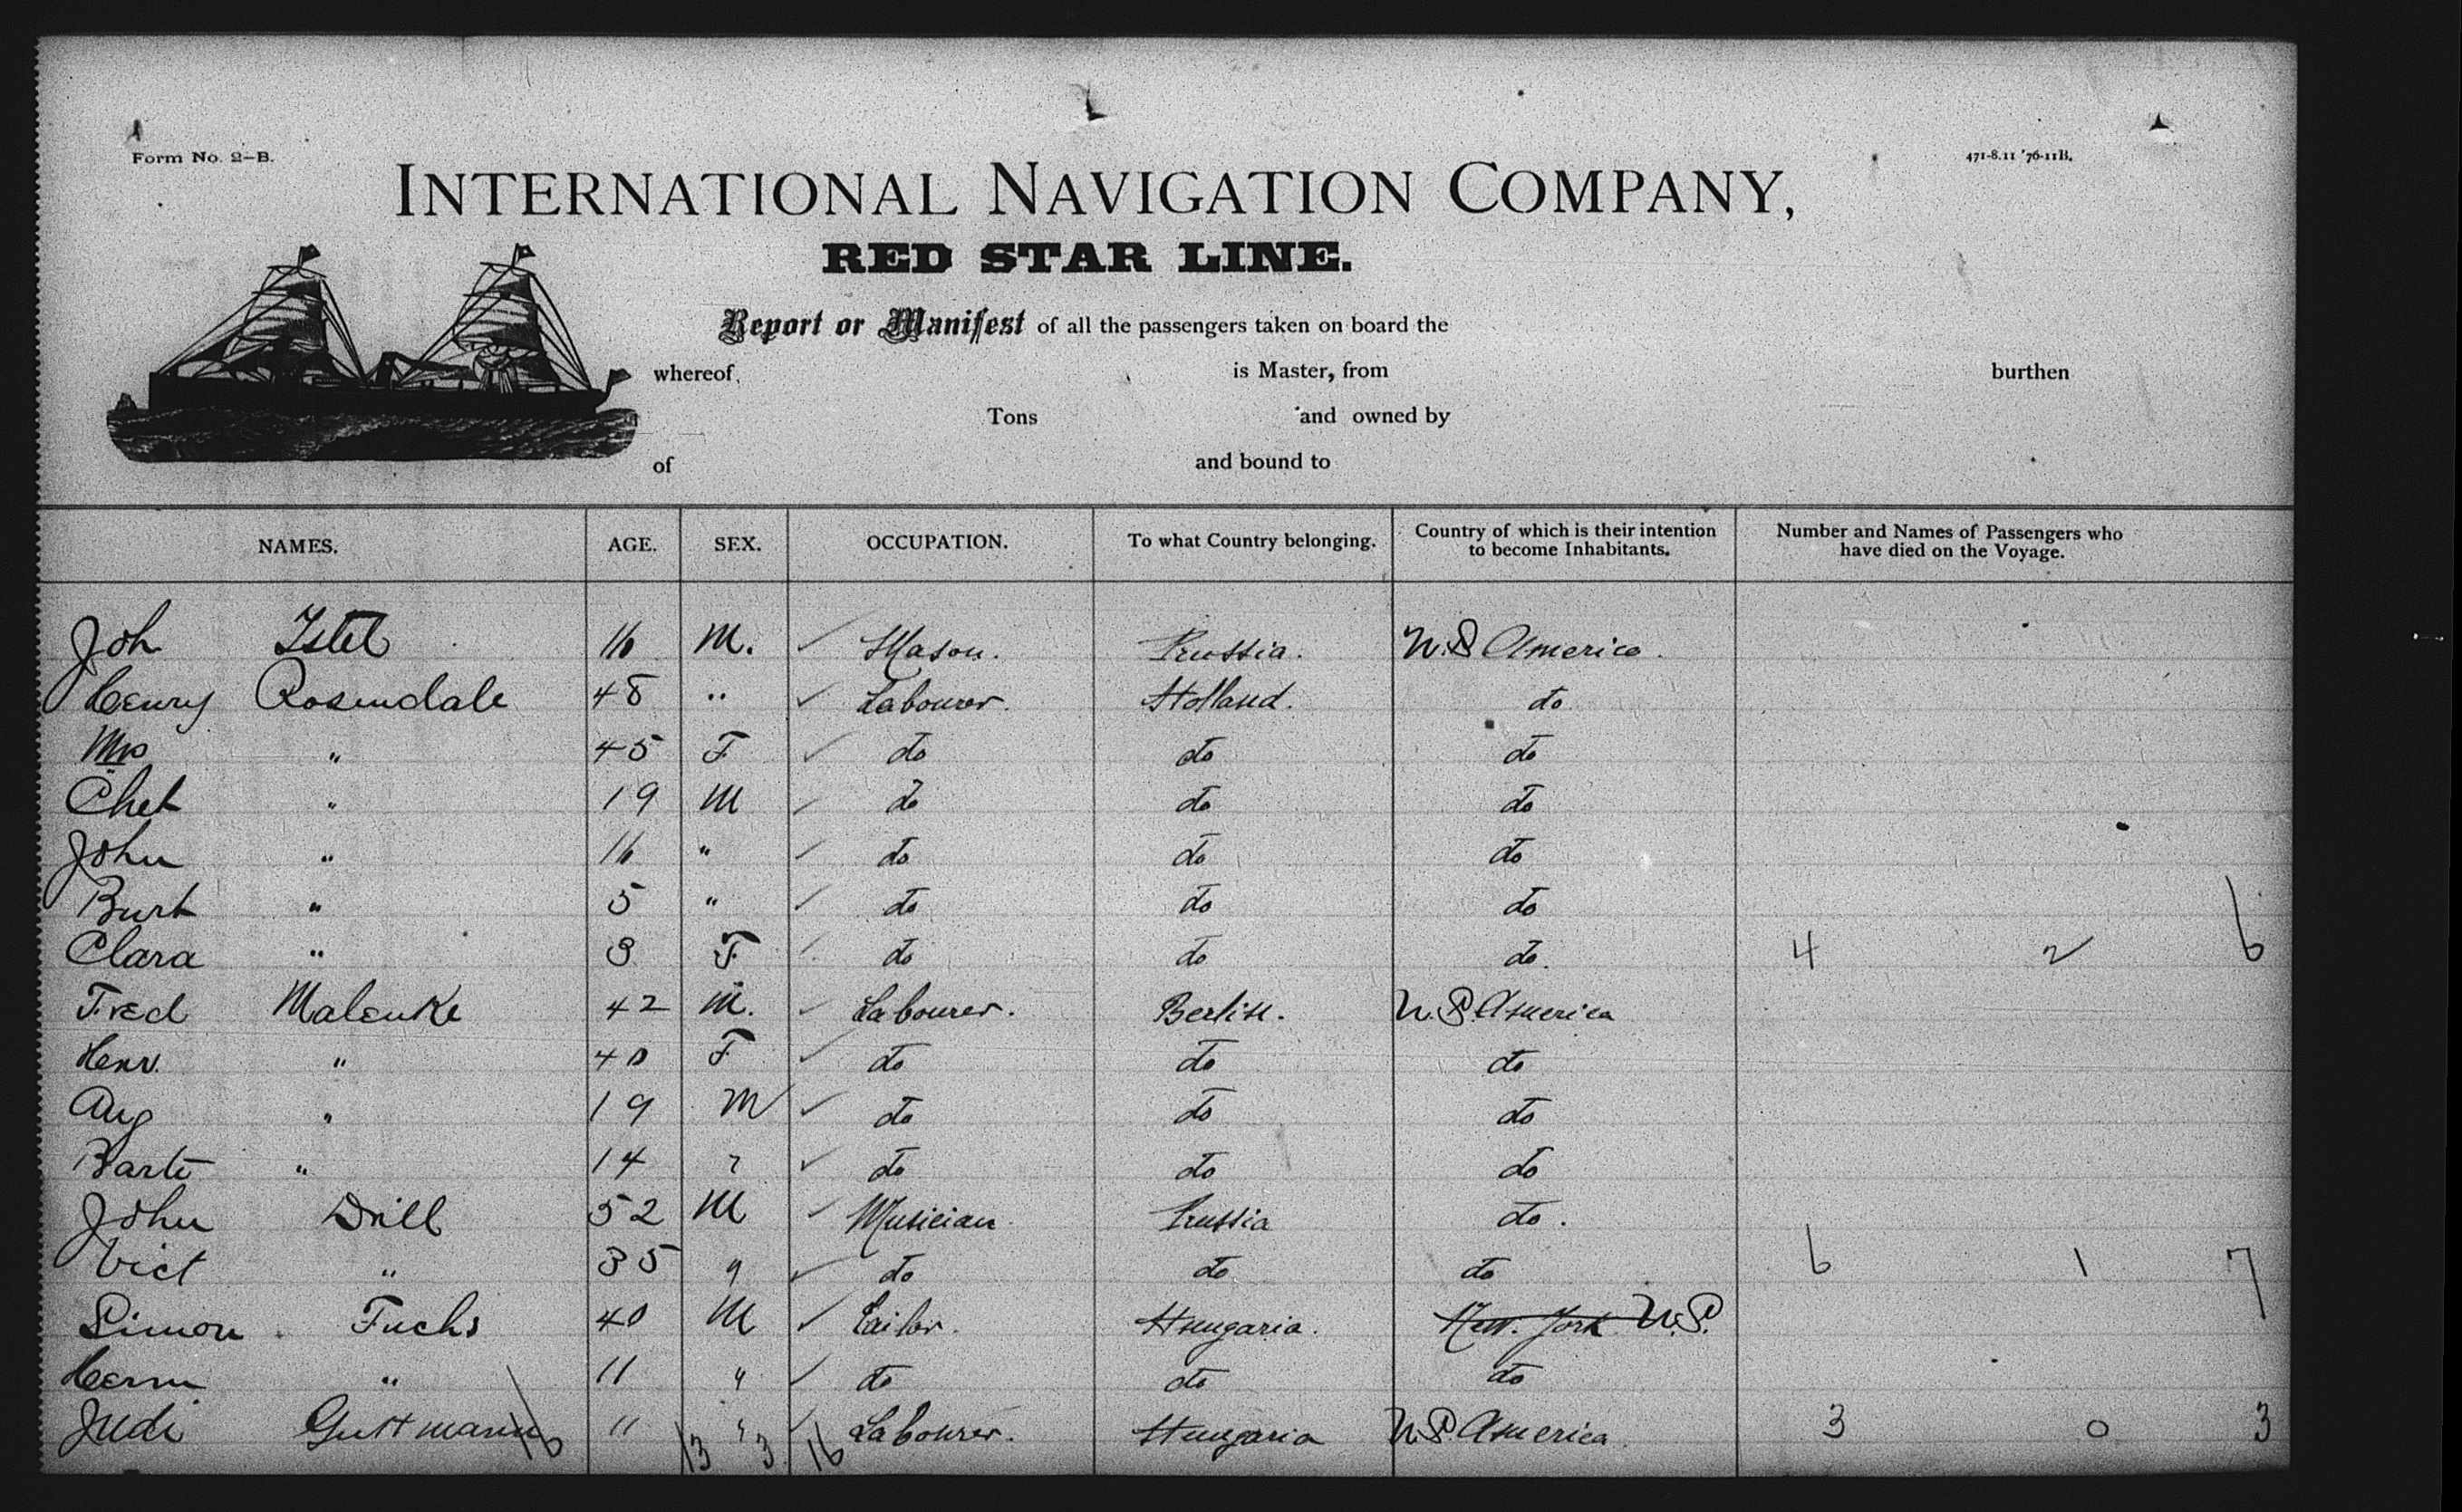 Form No. 2-B.
471-8.11 '76-11B.
INTERNATIONAL NAVIGATION COMPANY,
RED STAR LINE.
Report or Manifest of all the passengers taken on board the
whereof, is Master, from burthen
Tons and owned by
of and bound to
NAMES. AGE. SEX. OCCUPATION. To what Country belonging. Country of which is their intention to become Inhabitants. Number and Names of Passengers who have died on the Voyage.
Joh Istel 16 M. ✓ Mason. Prussia. U.S America.
Henry Rosendale 48 " ✓ Labourer. Holland. do
Mrs " 45 F ✓ do do do
Chet " 19 M ✓ do do do
John " 16 " ✓ do do do
Burt " 5 " ✓ do do do
Clara " 3 F ✓ do do do. 4 2 6
Fred Malenke 42 M. ✓ Labourer. Berlin. U.S. America
Henr. " 40 F ✓ do do do
Aug " 19 M ✓ do do do
Barte " 14 " ✓ do do do
John Drill 52 M ✓ Musician Prussia do.
Vict " 35 " ✓ do do do 6 1 7
Simon Fuchs 40 M ✓ Tailor. Hungaria. New. York U.S.
Herm " 11 " ✓ do do do
Judi Guttmann 11 " ✓ Labourer. Hungaria U.S. America 3 0 3
16 13 3 16